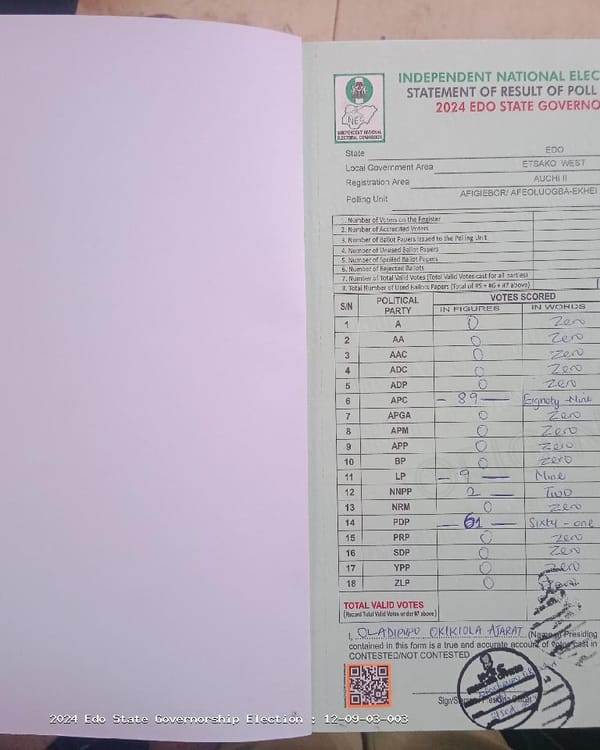 INDEPENDENT NATIONAL ELEC
STATEMENT OF RESULT OF POLL
2024 EDO STATE GOVERNO
INEC
INDEPENDENT NATIONAL
ELECTORAL COMMISSION
State EDO
Local Government Area ETSAKO WEST
Registration Area AUCHI II
Polling Unit AFIGIEBOR/ AFEOLUOGBA-EKHEI
1. Number of Voters on the Register
2. Number of Accredited Voters
3. Number of Ballot Papers Issued to the Polling Unit
4. Number of Unused Ballot Papers
5. Number of Spoiled Ballot Papers
6. Number of Rejected Ballots
7. Number of Total Valid Votes (Total Valid Votes cast for all parties)
8. Total Number of Used Ballot Papers (Total of #5 + #6 + #7 above)
S/N POLITICAL PARTY VOTES SCORED
IN FIGURES IN WORDS
1 A 0 Zero
2 AA 0 Zero
3 AAC 0 Zero
4 ADC 0 Zero
5 ADP 0 Zero
6 APC - 89 - Eignety-Nine
7 APGA 0 Zero
8 APM 0 Zero
9 APP 0 Zero
10 BP 0 Zero
11 LP - 9 - Nine
12 NNPP 2 - Two
13 NRM 0 Zero
14 PDP - 61 - Sixty-one
15 PRP 0 Zero
16 SDP 0 Zero
17 YPP 0 Zero
18 ZLP 0
TOTAL VALID VOTES
(Record Total Valid Votes under #7 above)
I, OLADIPUPO OKIKIOLA AJARAT (Name of Presiding
contained in this form is a true and accurate account of votes cast in
CONTESTED/NOT CONTESTED
2024 Edo State Governorship Election : 12_09-03-003